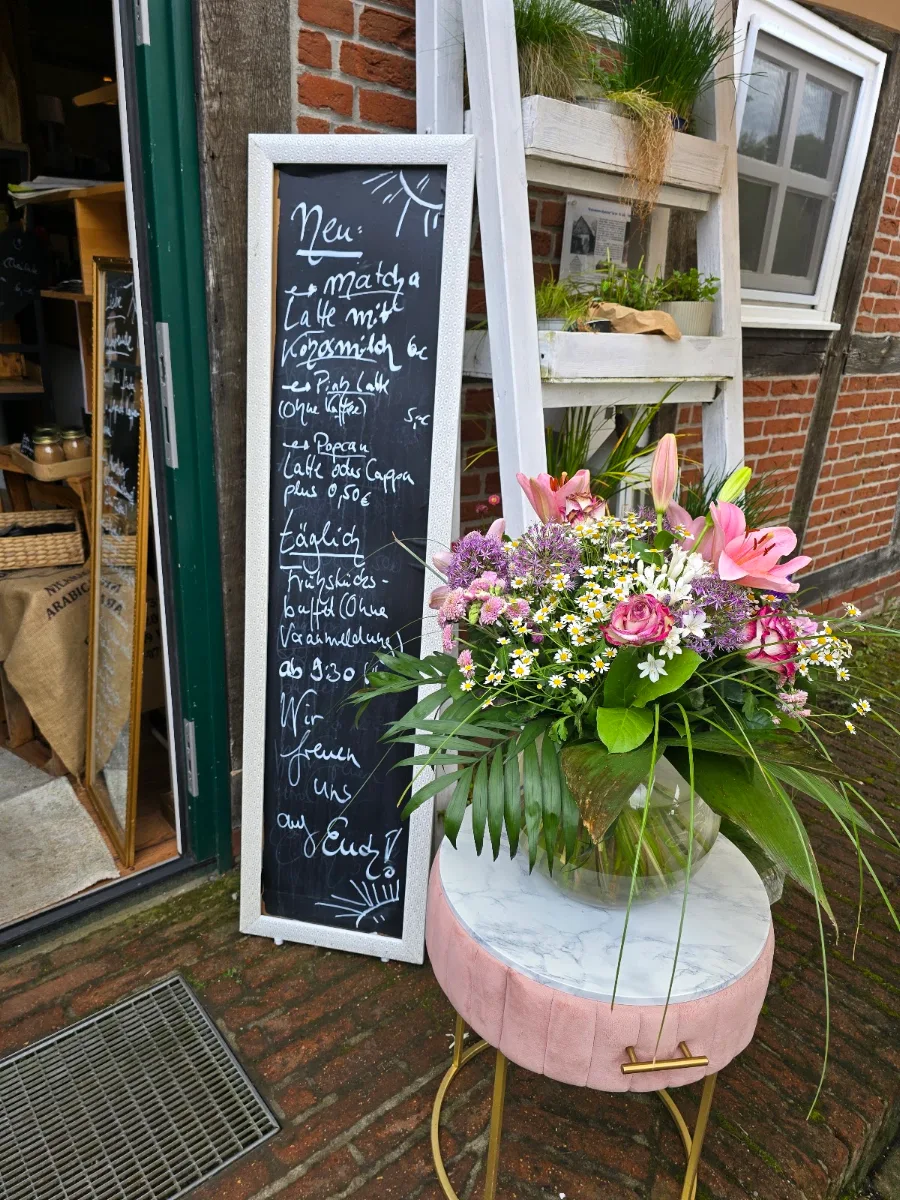 Neu:
→ Matcha
Latte mit
Kokosmilch 6€
→ Pink Latte
(Ohne Kaffee) 5,-€
→ Popcorn
Latte oder Cappu
plus 0,50€
täglich
Frühstücks-
buffet (Ohne
Voranmeldung)
ab 9:30
Wir
freuen
uns
auf Euch!
ARABIC